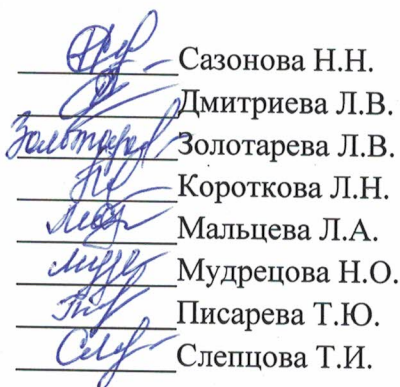 Сазонова Н.Н.
Дмитриева Л.В.
Золотарева Л.В.
Короткова Л.Н.
Мальцева Л.А.
Мудрецова Н.О.
Писарева Т.Ю.
Слепцова Т.И.